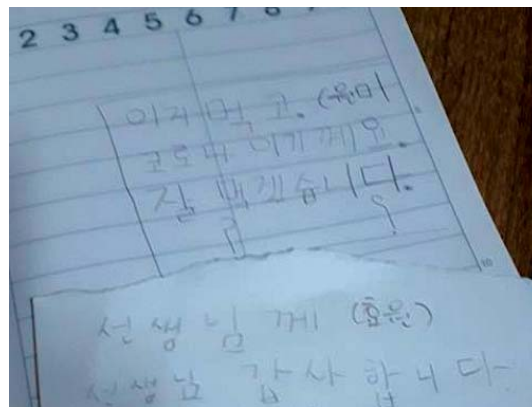 2 3 4 5 6 7 8
이거 먹고. (윤미
코로나 이기께요.
잘 먹겠습니다.
10
선생님께 (효은)
선생님 감사합니다.